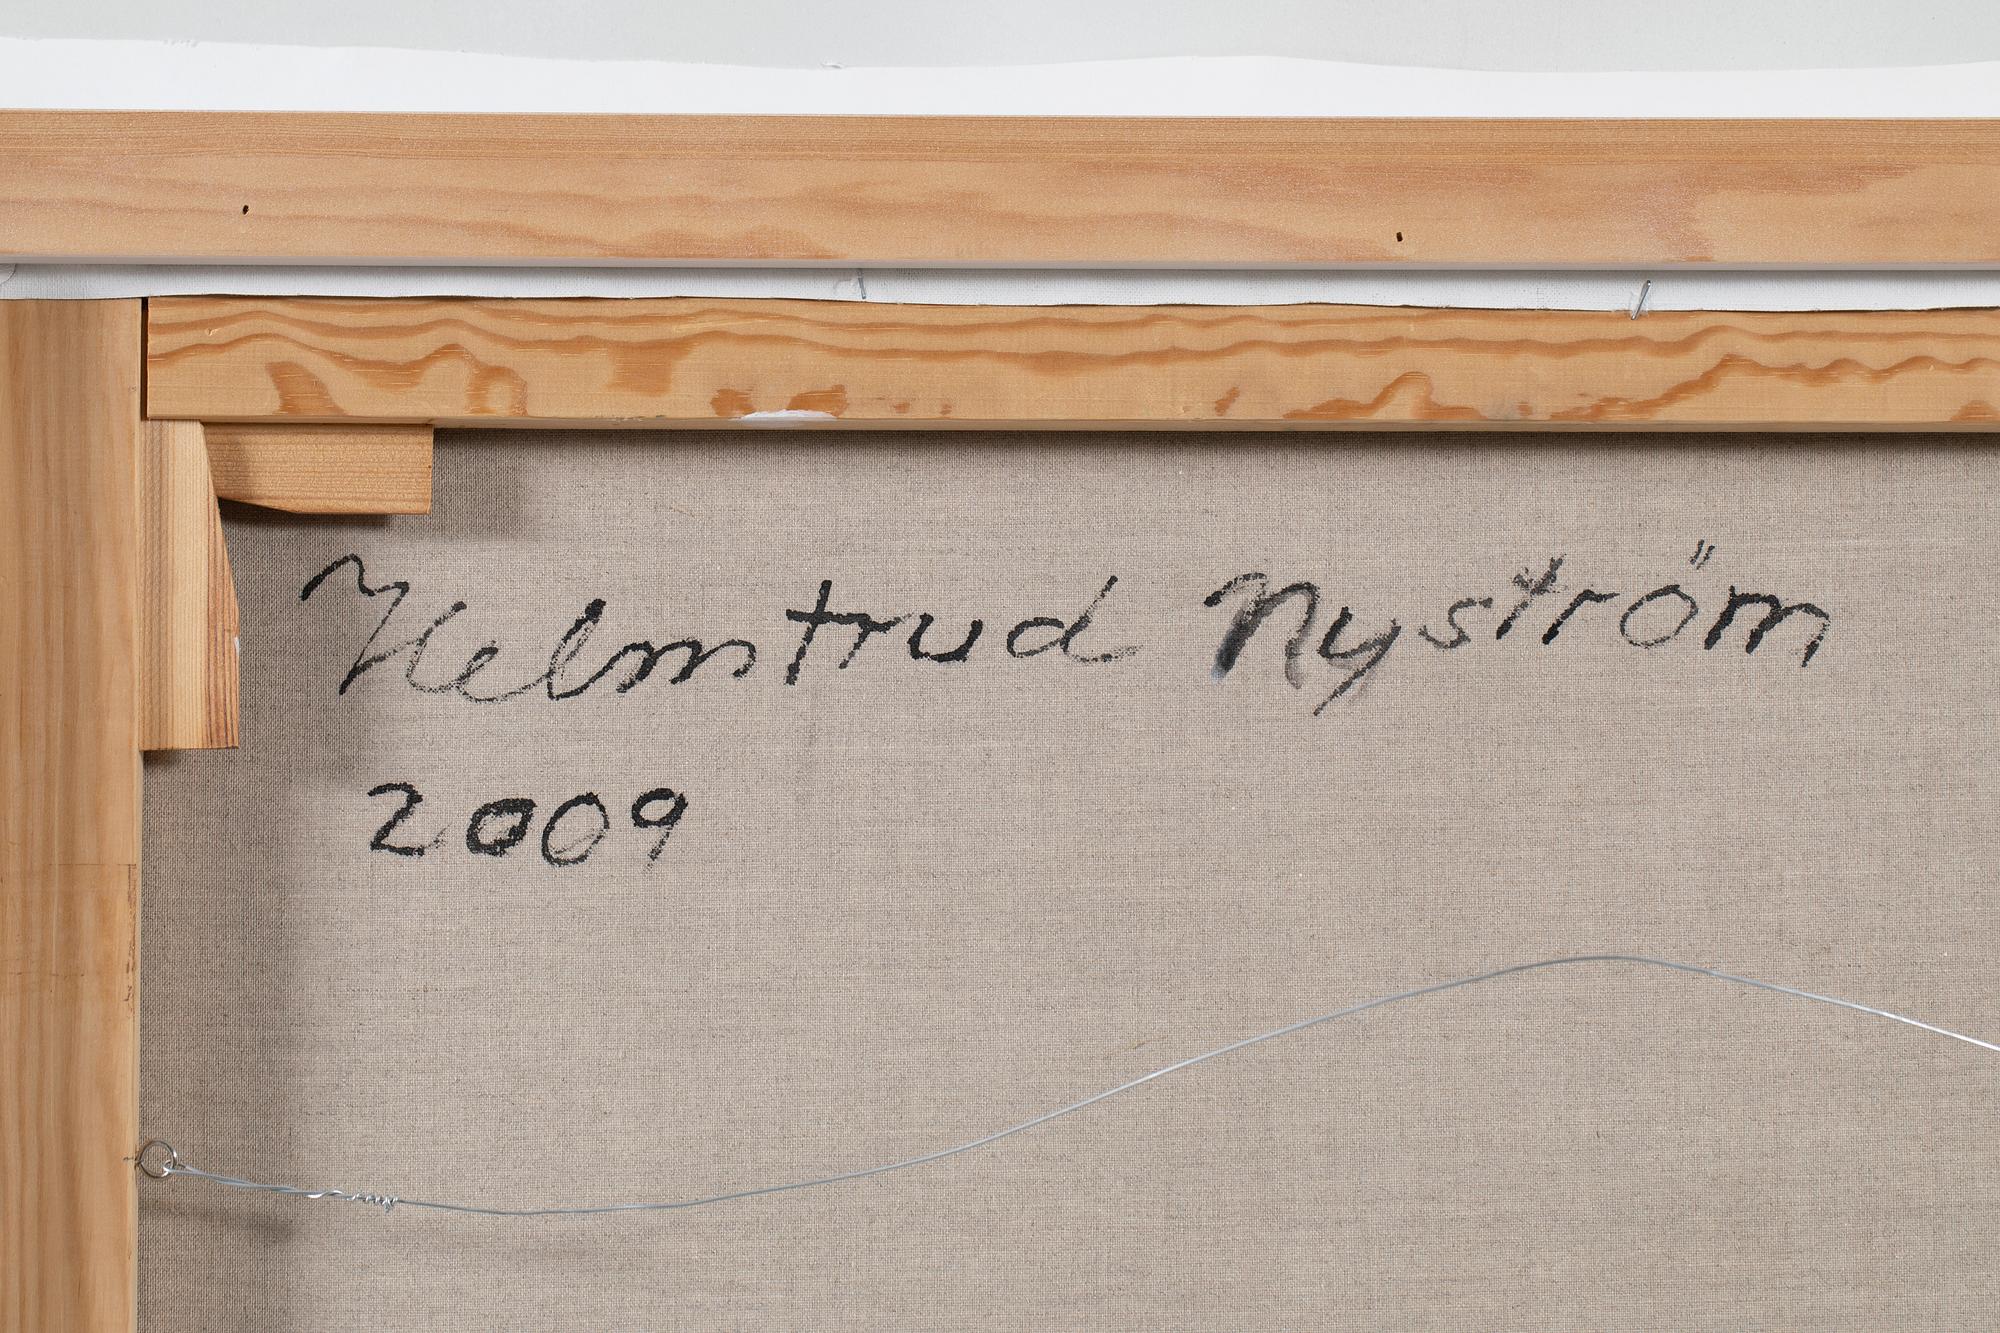 Helmtrud Nyström
2009